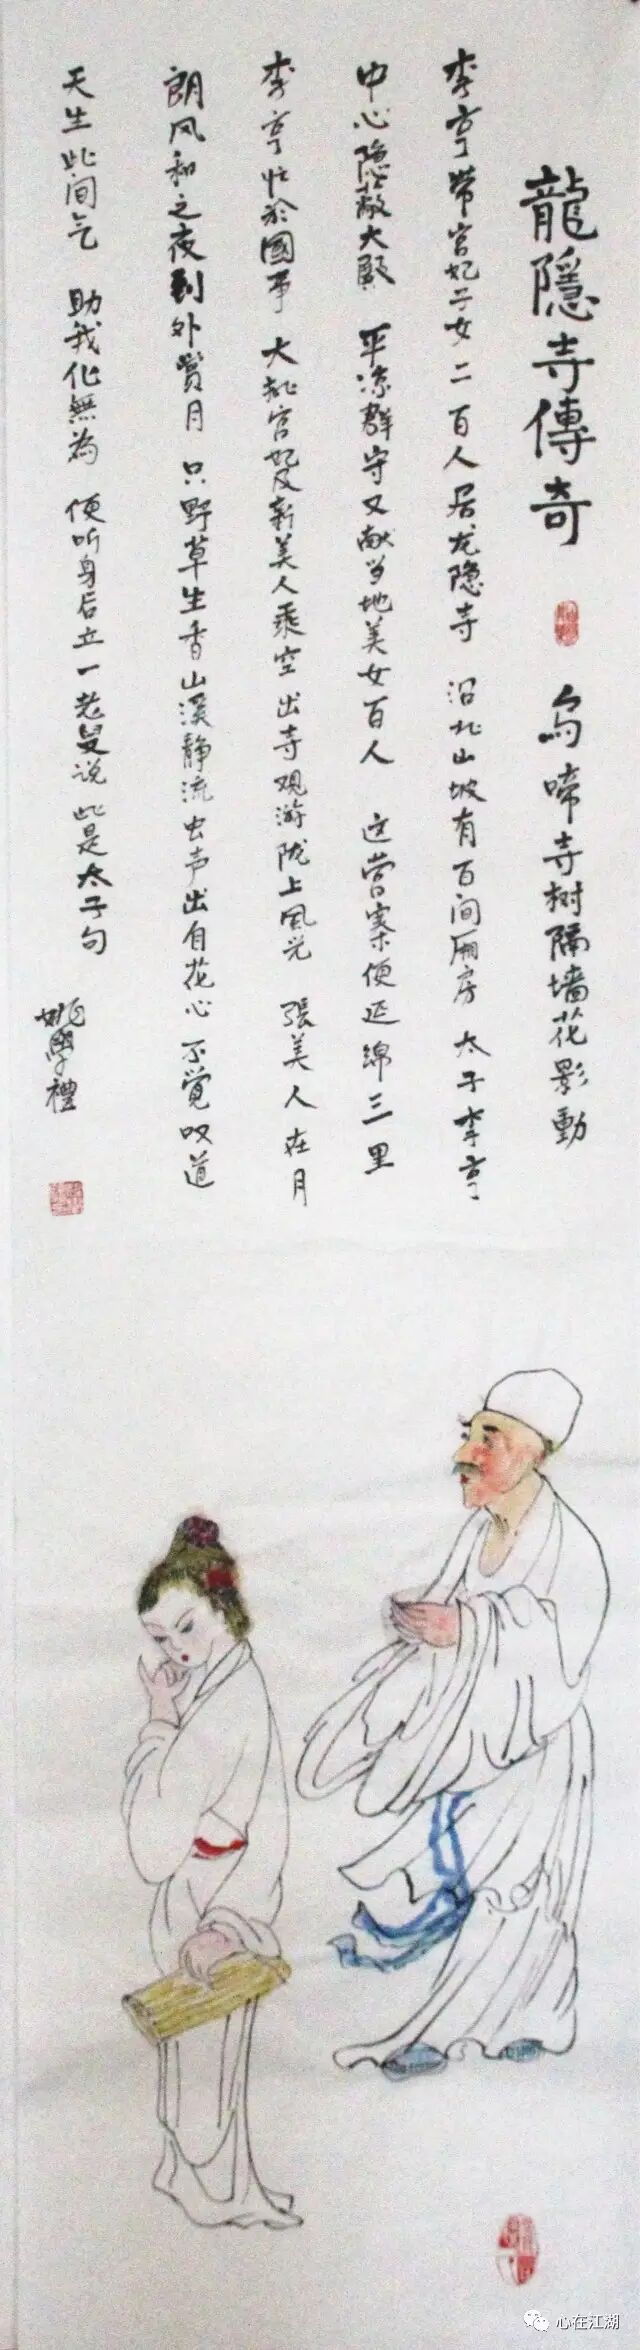 龍隱寺傳奇 烏啼寺树隔墙花影動
李亨带宫妃子女二百人居龙隐寺 沿北山坡有百间厢房 太子李亨
中心隐蔽大殿 平凉群守又献当地美女百人 这营寨便延绵三里
李亨忙於國事 大批宫妃及新美人乘空出寺观游陇上風光 張美人在月
朗风和之夜到外賞月 只野草生香山溪静流虫声出自花心 不覺叹道
天生此间气 助我化無為 便听身后立一老叟说 此是太子句
姚學禮
心在江湖